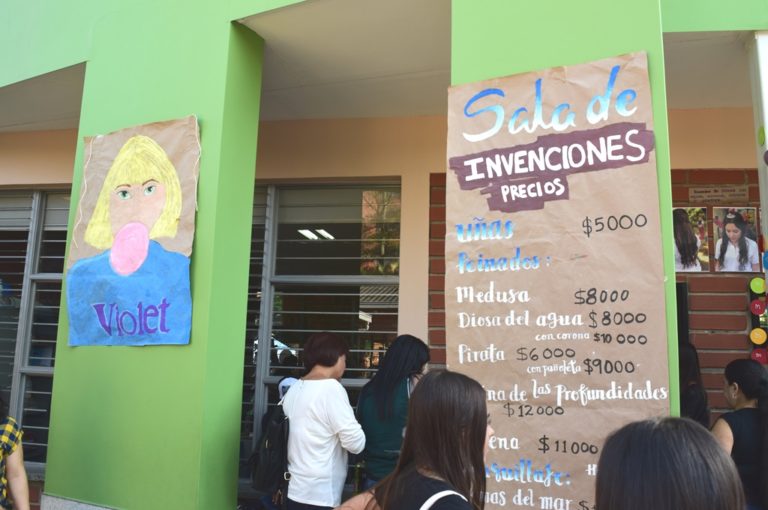 Violet
Sala de
INVENCIONES
PRECIOS
uñas $5000
Peinados:
Medusa $8000
Diosa del agua $8000
con corona $10000
Pirata $6000
con pañoleta $9000
na de las Profundidades
$12000
ena $11000
quillaje:
mas del mar